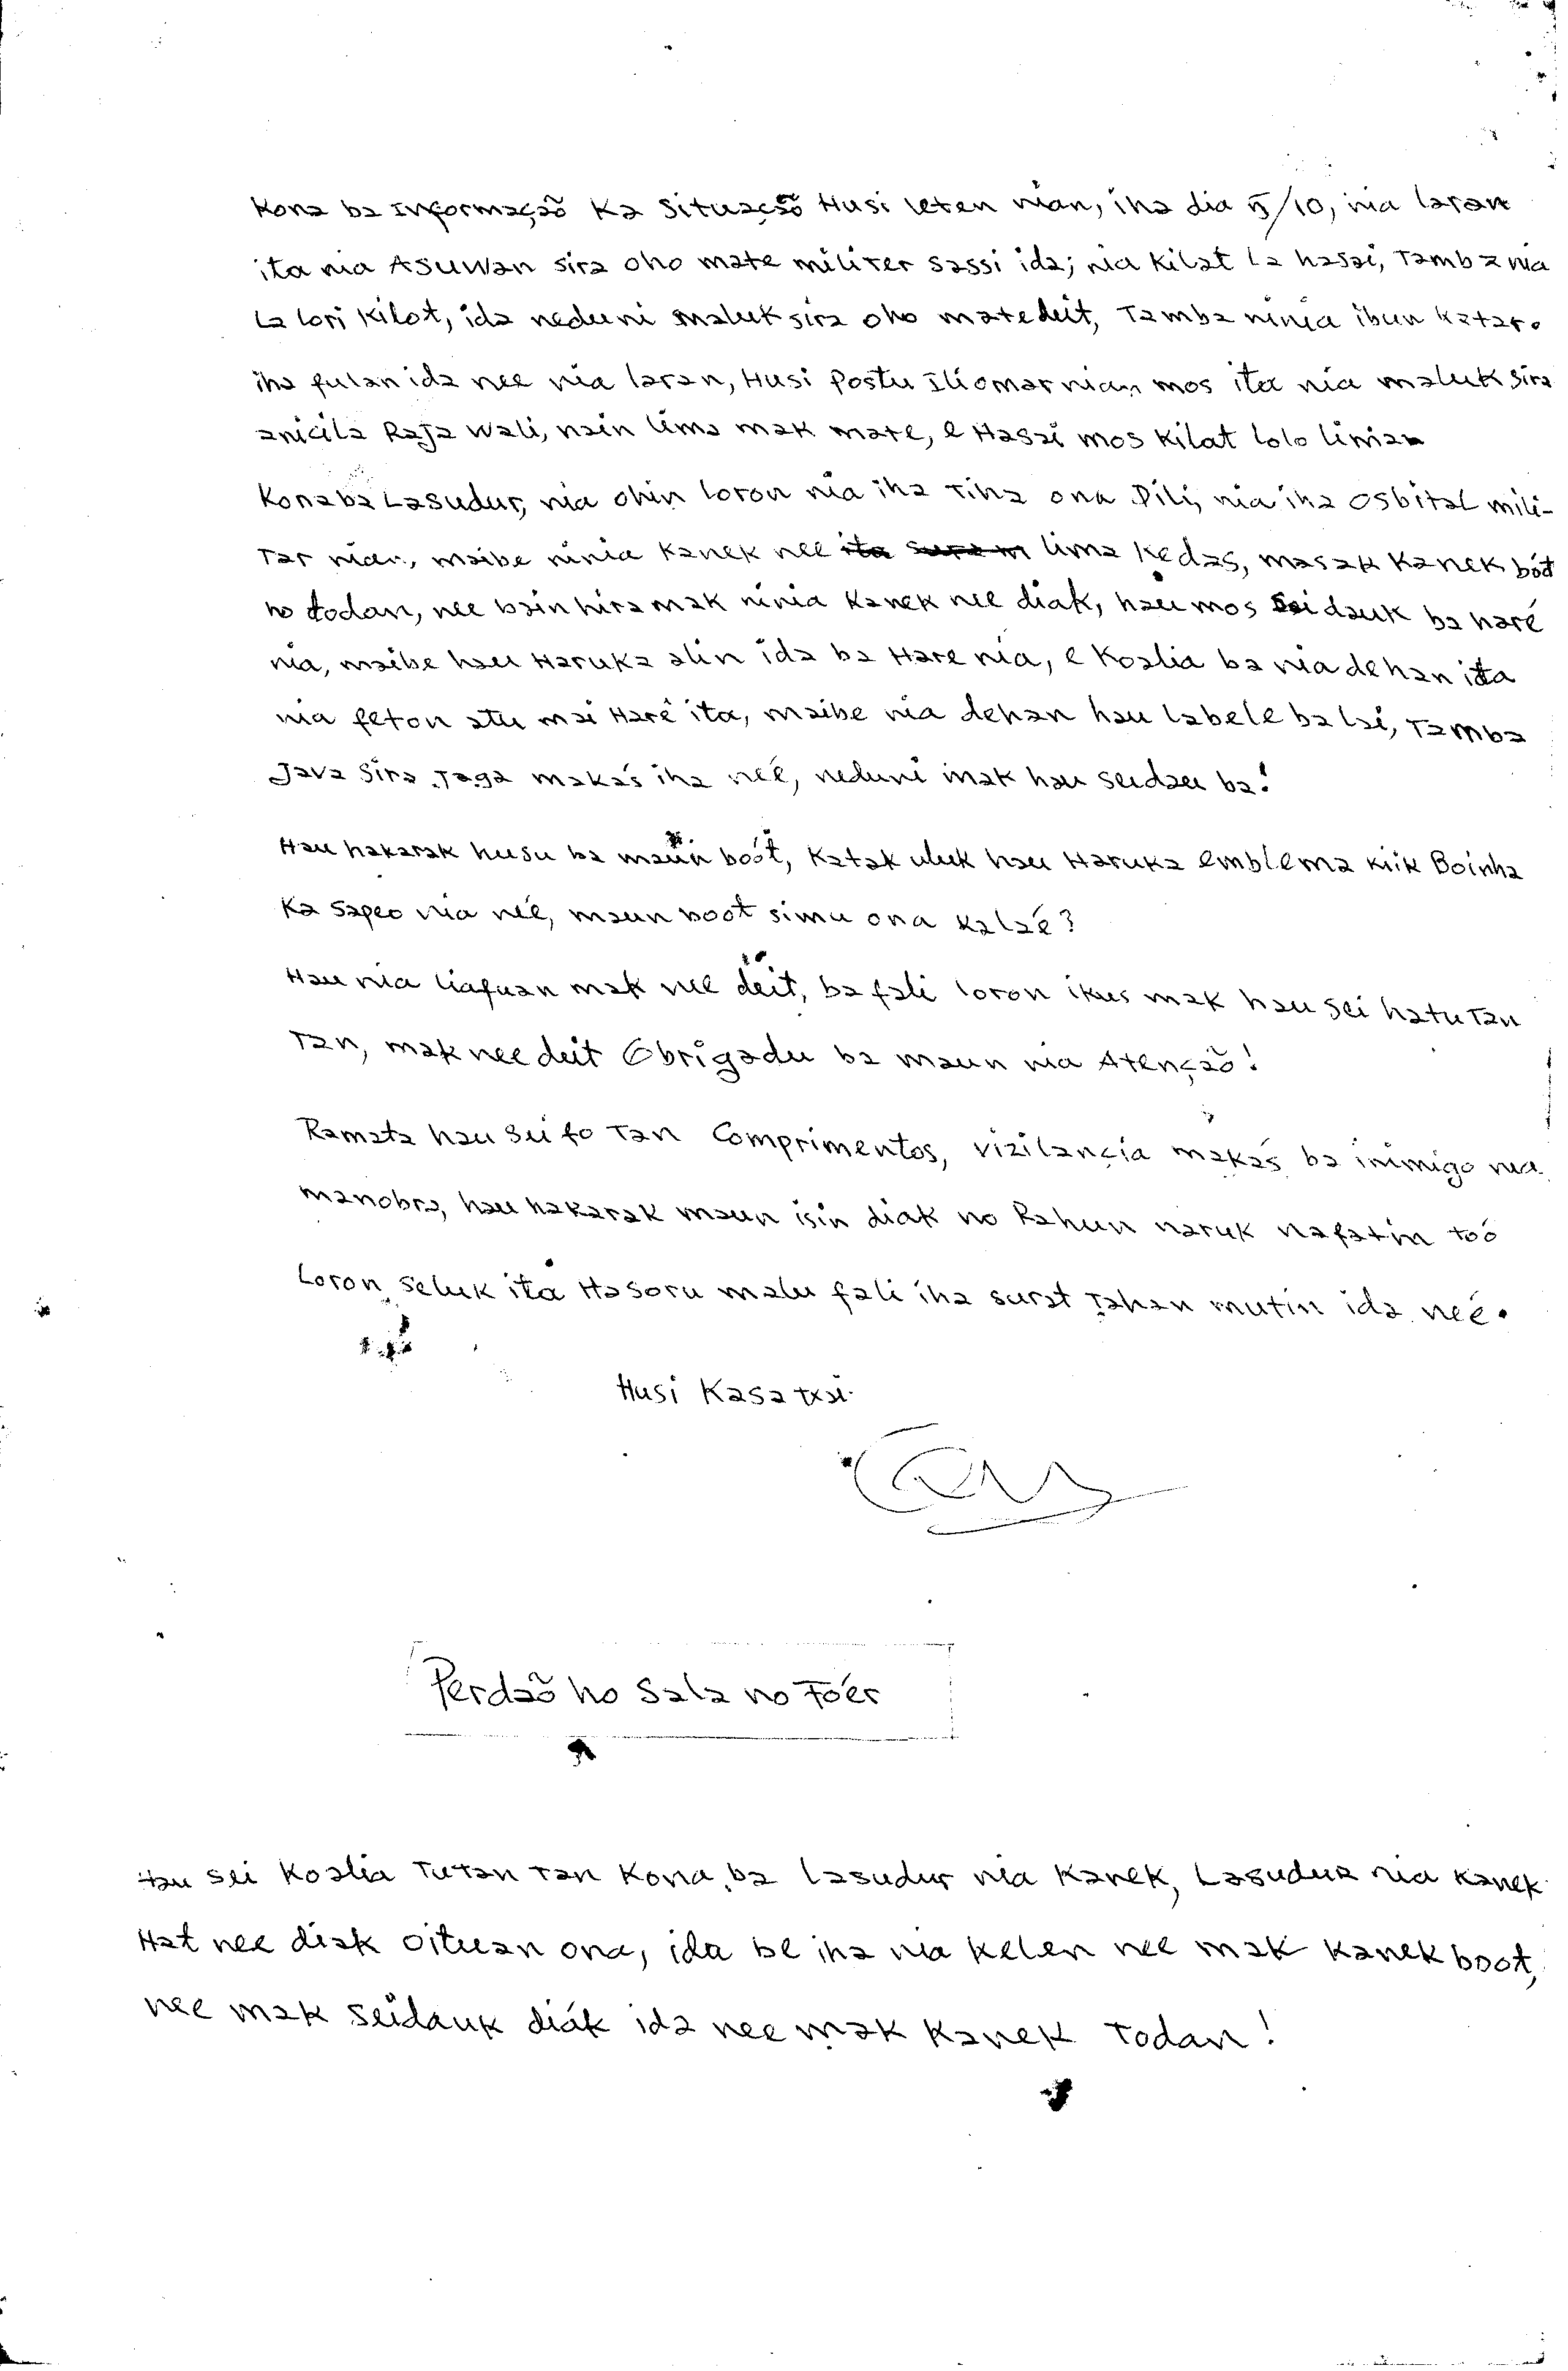 Kona ba Informação Ka Situação Husi leten nian, iha dia 5/10, nia laran
ita nia Asuwan sira oho mate militer sassi ida; nia Kilat la hasai, Tamba nia
la lori Kilat, ida neduni maluk sira oho mate deit, Tamba ninia ibun Katar.
iha fulan ida nee nia laran, Husi Postu Iliomar nian, mos ita nia maluk sira
anicila Raja Wali, nain lima mak mate, e Hassai mos Kilat lolo liman
Kona ba Lasudur, nia ohin loron nia iha Tiha ona Dili, nia iha Osbital mili-
Tar nian, maibe ninia Kanek nee lima Kedas, masak Kanek bót
ho todan, nee bain hira mak ninia Kanek nee diak, hau mos Seidauk ba haré
nia, maibe hau Haruka alin ida ba Hare nia, e Koalia ba nia dehan ita
nia feton atu mai Haré ita, maibe nia dehan hau labele ba lai, Tamba
Java Sira Jaga makas iha neé, neduni mak hau seidau ba!
Hau hakarak husu ba maun boót, Katak uluk hau Haruka emblema Kiik Boinha
Ka Sapeo nia neé, maun boot simu ona Kalaé?
Hau nia liafuan mak nee deit, ba fali loron ikus mak hau sei hatutan
Tan, mak nee deit Obrigadu ba maun nia Atenção!
Ramata hau sei fo Tan Comprimentos, vizilançia makas ba inimigo nia
manobra, hau hakarak maun isin diak no Rahun naruk nafatin toó
Loron seluk ita Hasoru malu fali iha surat Tahan mutin ida neé.
Husi Kasa
Perdaõ ho Sala no Foér
Hau sei Koalia Tutan Tan Kona ba lasudur nia Kanek, Lasudur nia Kanek
Hat nee diak oituan ona, ida be iha nia Kelen nee mak Kanek boot,
nee mak Seidauk diák ida nee mak Kanek Todan!